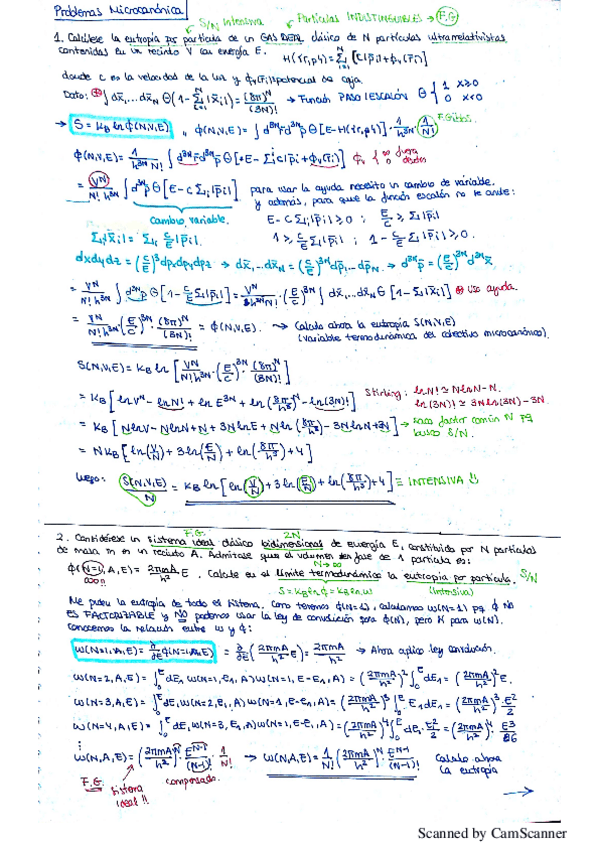 Problemas Microcanónica
S/N intensiva Partículas INDISTINGUIBLES → F.G
1. Calcúlese la entropía por partícula de un GAS IDEAL clásico de N partículas ultrarrelativistas
contenidas en un recinto V con energía E. H(r,p,4) = Σ [c|p̄i| + ϕv(r̄i)]
donde c es la velocidad de la luz y ϕv(r̄i) potencial de caja.
Dato: ⊕ ∫ dx̄1...dx̄N Θ(1-Σ|x̄i|) = (8π)^N/(3N)! → Función PASO/ESCALÓN Θ { 1 x≥0 0 x<0
→ S = kB ln ϕ(N,V,E) ϕ(N,V,E) = ∫ d^3N r̄ d^3N p̄ Θ[E-H(r,p,4)] · 1/h^3N · 1/N! F.Gibbs
ϕ(N,V,E) = 1/(h^3N N!) ∫ d^3N r̄ d^3N p̄ Θ[+E - Σ c|p̄i| + ϕv(r̄i)] ϕv { ∞ fuera 0 dentro
= V^N/(N! h^3N) ∫ d^3N p̄ Θ[E - c Σi|p̄i|] para usar la ayuda necesito un cambio de variable.
y además, para que la función escalón no se anule:
cambio variable. E - c Σi|p̄i| ≥ 0 ; E/c ≥ Σi|p̄i|
Σi|x̄i| = Σi c/E |p̄i| 1 ≥ c/E Σi|p̄i| ; 1 - c/E Σi|p̄i| ≥ 0.
dxdydz = (c/E)^3 dpx dpy dpz → dx̄1...dx̄N = (c/E)^3N dp̄1...dp̄N → d^3N p̄ = (E/c)^3N d^3N x̄
= V^N/(N! h^3N) ∫ d^3N p̄ Θ[1 - c/E Σi|p̄i|] = V^N/(N! h^3N) · (E/c)^3N ∫ dx̄1...dx̄N Θ[1 - Σi|x̄i|] ⊕ Uso ayuda.
= V^N/(N! h^3N) (E/c)^3N · (8π)^N/(3N)! = ϕ(N,V,E) → Calculo ahora la entropía S(N,V,E)
(variable termodinámica del colectivo microcanónico).
S(N,V,E) = kB ln [V^N/(N! h^3N) · (E/c)^3N · (8π)^N/(3N)!]
= kB [ln V^N - ln N! + ln E^3N + ln (8π/h^3)^N - ln(3N)!] Stirling: ln N! ≃ N ln N - N.
ln(3N)! ≃ 3N ln(3N) - 3N.
= kB [N ln V - N ln N + N + 3N ln E + N ln(8π/h^3) - 3N ln N + 3N] → saco factor común N pq
busco S/N.
= N kB [ln(V/N) + 3 ln(E/N) + ln(8π/h^3) + 4]
Luego: S(N,V,E)/N = kB ln [ln(V/N) + 3 ln(E/N) + ln(8π/h^3) + 4] ≡ INTENSIVA
F.G. 2N
2. Considérese un sistema ideal clásico bidimensional de energía E, constituido por N partículas
de masa m en un recinto A. Admítase que el volumen en fase de 1 partícula es:
N→∞
ϕ(N=1, A, E) = 2πmA/h² E. Calcule en el límite termodinámico la entropía por partícula. S/N
ojo!! S = kB ln ϕ = kB ln ω (intensiva)
Me piden la entropía de todo el sistema. Como tenemos ϕ(N=1), calculamos ω(N=1) pq ϕ NO
ES FACTORIZABLE y NO podemos usar la ley de convolución para ϕ(N), pero sí para ω(N).
Conocemos la relación entre ω y ϕ:
ω(N=1,A,E) = ∂/∂E ϕ(N=1,A,E) = ∂/∂E (2πmA/h² E) = 2πmA/h² → Ahora aplico ley convolución.
ω(N=2,A,E) = ∫ dE1 ω(N=1,E1,A) ω(N=1, E-E1, A) = (2πmA/h²)² ∫ dE1 = (2πmA/h²)² E.
ω(N=3,A,E) = ∫ dE1 ω(N=2,E1,A) ω(N=1, E-E1, A) = (2πmA/h²)³ ∫ E1 dE1 = (2πmA/h²)³ · E²/2
ω(N=4,A,E) = ∫ dE1 ω(N=3,E1,A) ω(N=1, E-E1, A) = (2πmA/h²)⁴ ∫ dE1 E²/2 = (2πmA/h²)⁴ · E³/6
⋮
ω(N,A,E) = (2πmA/h²)^N · E^N-1/(N-1)! · 1/N! → ω(N,A,E) = 1/N! (2πmA/h²)^N E^N-1/(N-1)! Calculo ahora
F.G. sistema ideal!! compensado. la entropía
→
Scanned by CamScanner